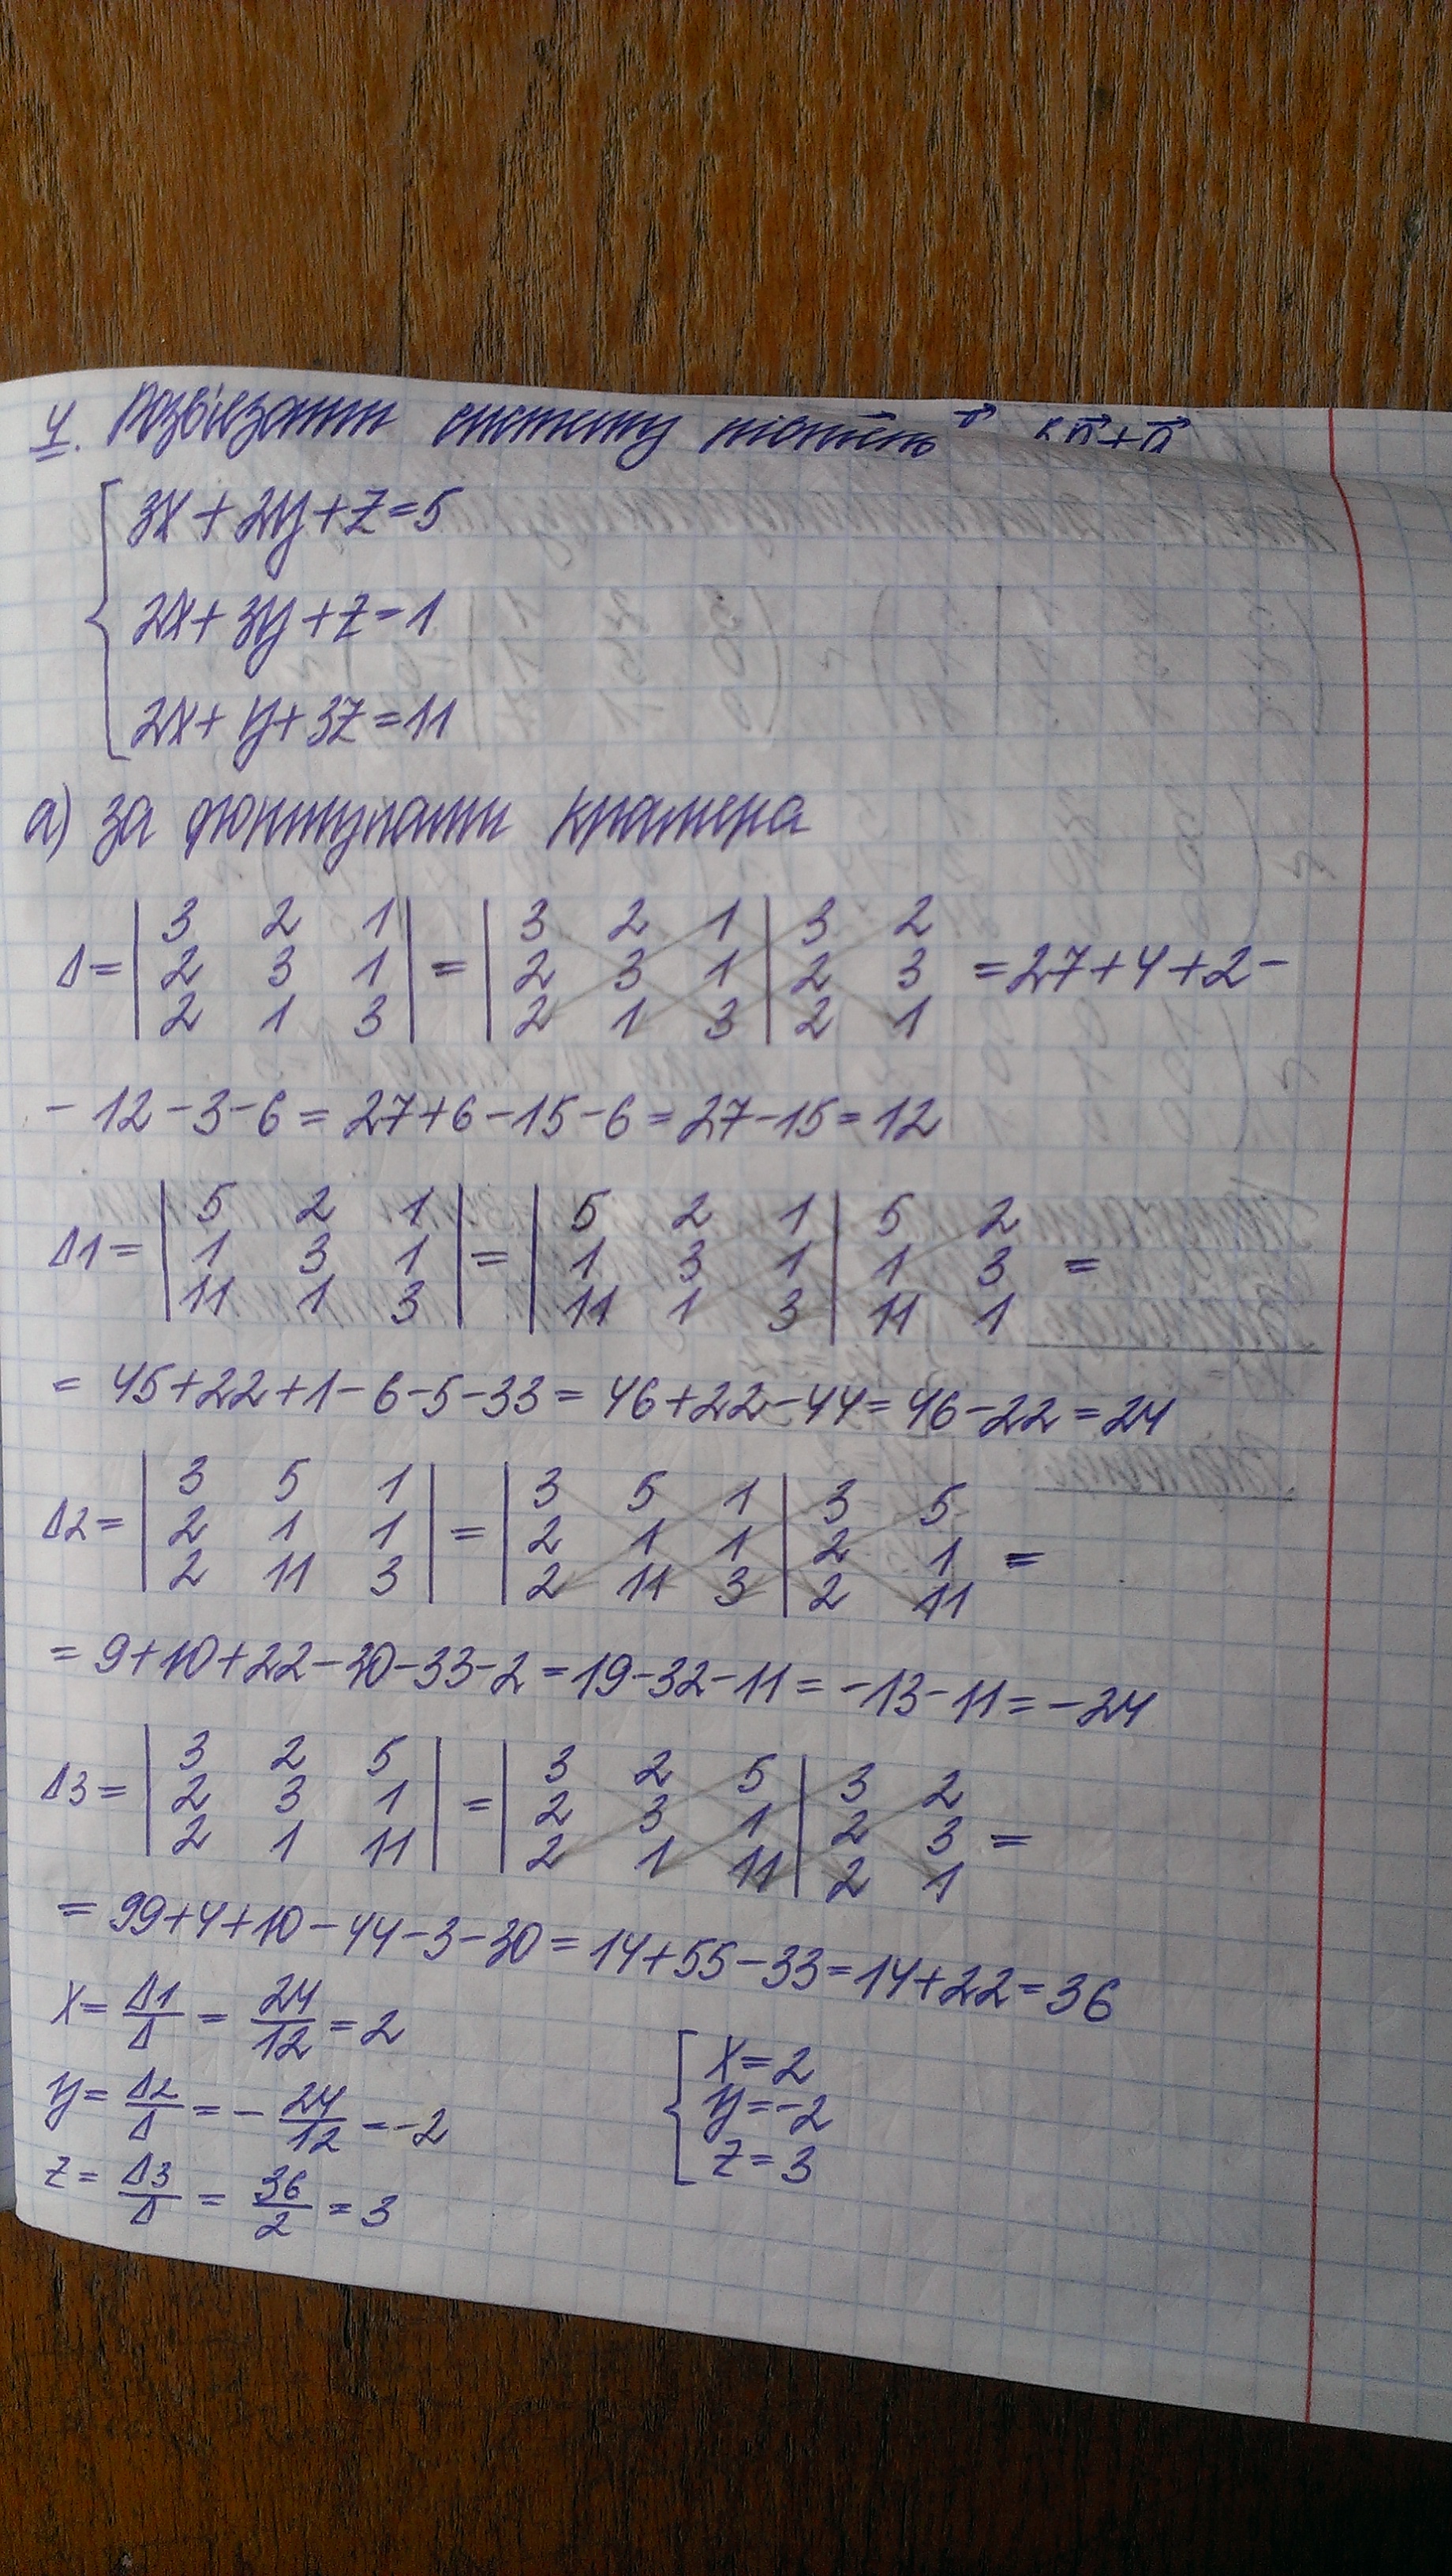 4. Розв'язати систему рівнянь
3x + 2y + z = 5
2x + 3y + z = 1
2x + y + 3z = 11
а) за формулами Крамера
Δ = | 3 2 1 | = | 3 2 1 | 3 2
| 2 3 1 | | 2 3 1 | 2 3 = 27 + 4 + 2 -
| 2 1 3 | | 2 1 3 | 2 1
- 12 - 3 - 6 = 27 + 6 - 15 - 6 = 27 - 15 = 12
Δ1 = | 5 2 1 | = | 5 2 1 | 5 2
| 1 3 1 | | 1 3 1 | 1 3 =
| 11 1 3 | | 11 1 3 | 11 1
= 45 + 22 + 1 - 6 - 5 - 33 = 46 + 22 - 44 = 46 - 22 = 24
Δ2 = | 3 5 1 | = | 3 5 1 | 3 5
| 2 1 1 | | 2 1 1 | 2 1 =
| 2 11 3 | | 2 11 3 | 2 11
= 9 + 10 + 22 - 30 - 33 - 2 = 19 - 32 - 11 = -13 - 11 = -24
Δ3 = | 3 2 5 | = | 3 2 5 | 3 2
| 2 3 1 | | 2 3 1 | 2 3 =
| 2 1 11 | | 2 1 11 | 2 1
= 99 + 4 + 10 - 44 - 3 - 30 = 14 + 55 - 33 = 14 + 22 = 36
x = Δ1/Δ = 24/12 = 2
y = Δ2/Δ = - 24/12 = -2
z = Δ3/Δ = 36/2 = 3
x = 2
y = -2
z = 3